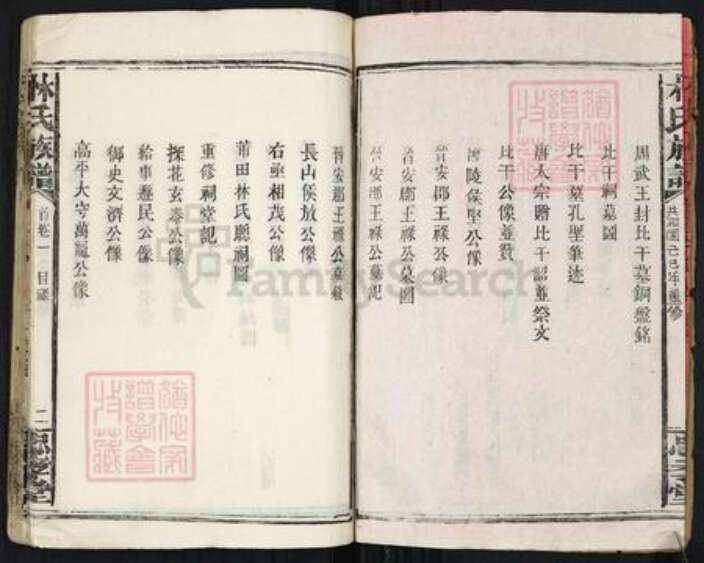 林氏族譜
共和國己巳年重修
思孝堂
周武王封比干墓銅盤銘
比干祠墓圖
比干墓孔聖筆迹
唐太宗贈比干詔並祭文
比干公像並贊
晋安郡王祿公像
晋安郡王祿公墓圖
晋安郡王祿公墓記
晉安郡王祿公墓
長山侯放公像
右丞相茂公像
莆田林氏聽祠圖
重修祠堂記
探花玄泰公像
給事歷民公像
御史文濟公像
高平大守萬寵公像
林氏族譜
首卷一
目錄
二
思孝堂
FamilySearch